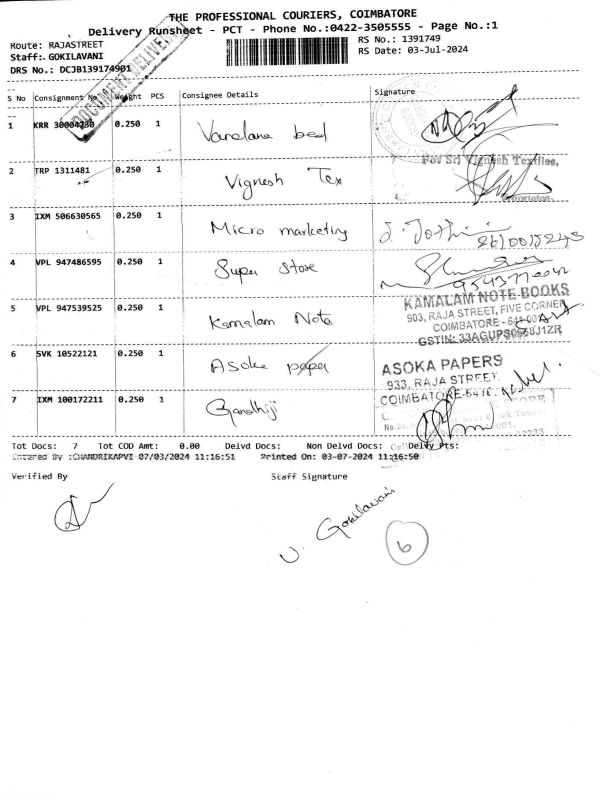 THE PROFESSIONAL COURIERS, COIMBATORE
Delivery Runsheet - PCT - Phone No.:0422-3505555 - Page No.:1
Route: RAJASTREET
RS No.: 1391749
Staff: GOKILAVANI
RS Date: 03-Jul-2024
DRS No.: DCJB139174901
DOCUMENT DELIVERY
S No Consignment No Weight PCS Consignee Details Signature
1 KRR 30004230 0.250 1 Varalane bed
2 TRP 1311481 0.250 1 Vignesh Tex
For Sri Vignesh Textiles,
3 IXM 506630565 0.250 1 Micro marketing
4 VPL 947486595 0.250 1 Super Store
5 VPL 947539525 0.250 1 Kamalam Note
KAMALAM NOTE BOOKS
903, RAJA STREET, FIVE CORNER
COIMBATORE - 641 001
6 SVK 10522121 0.250 1 Asoka paper
ASOKA PAPERS
933, RAJA STREET,
COIMBATORE-641
7 IXM 100172211 0.250 1 Gandhiji
Tot Docs: 7 Tot COD Amt: 0.00 Delvd Docs: Non Delvd Docs: Delvy Pts:
Entered By :CHANDRIKAPVI 07/03/2024 11:16:51 Printed On: 03-07-2024 11:16:50
Verified By Staff Signature
V. Gokilavani
6